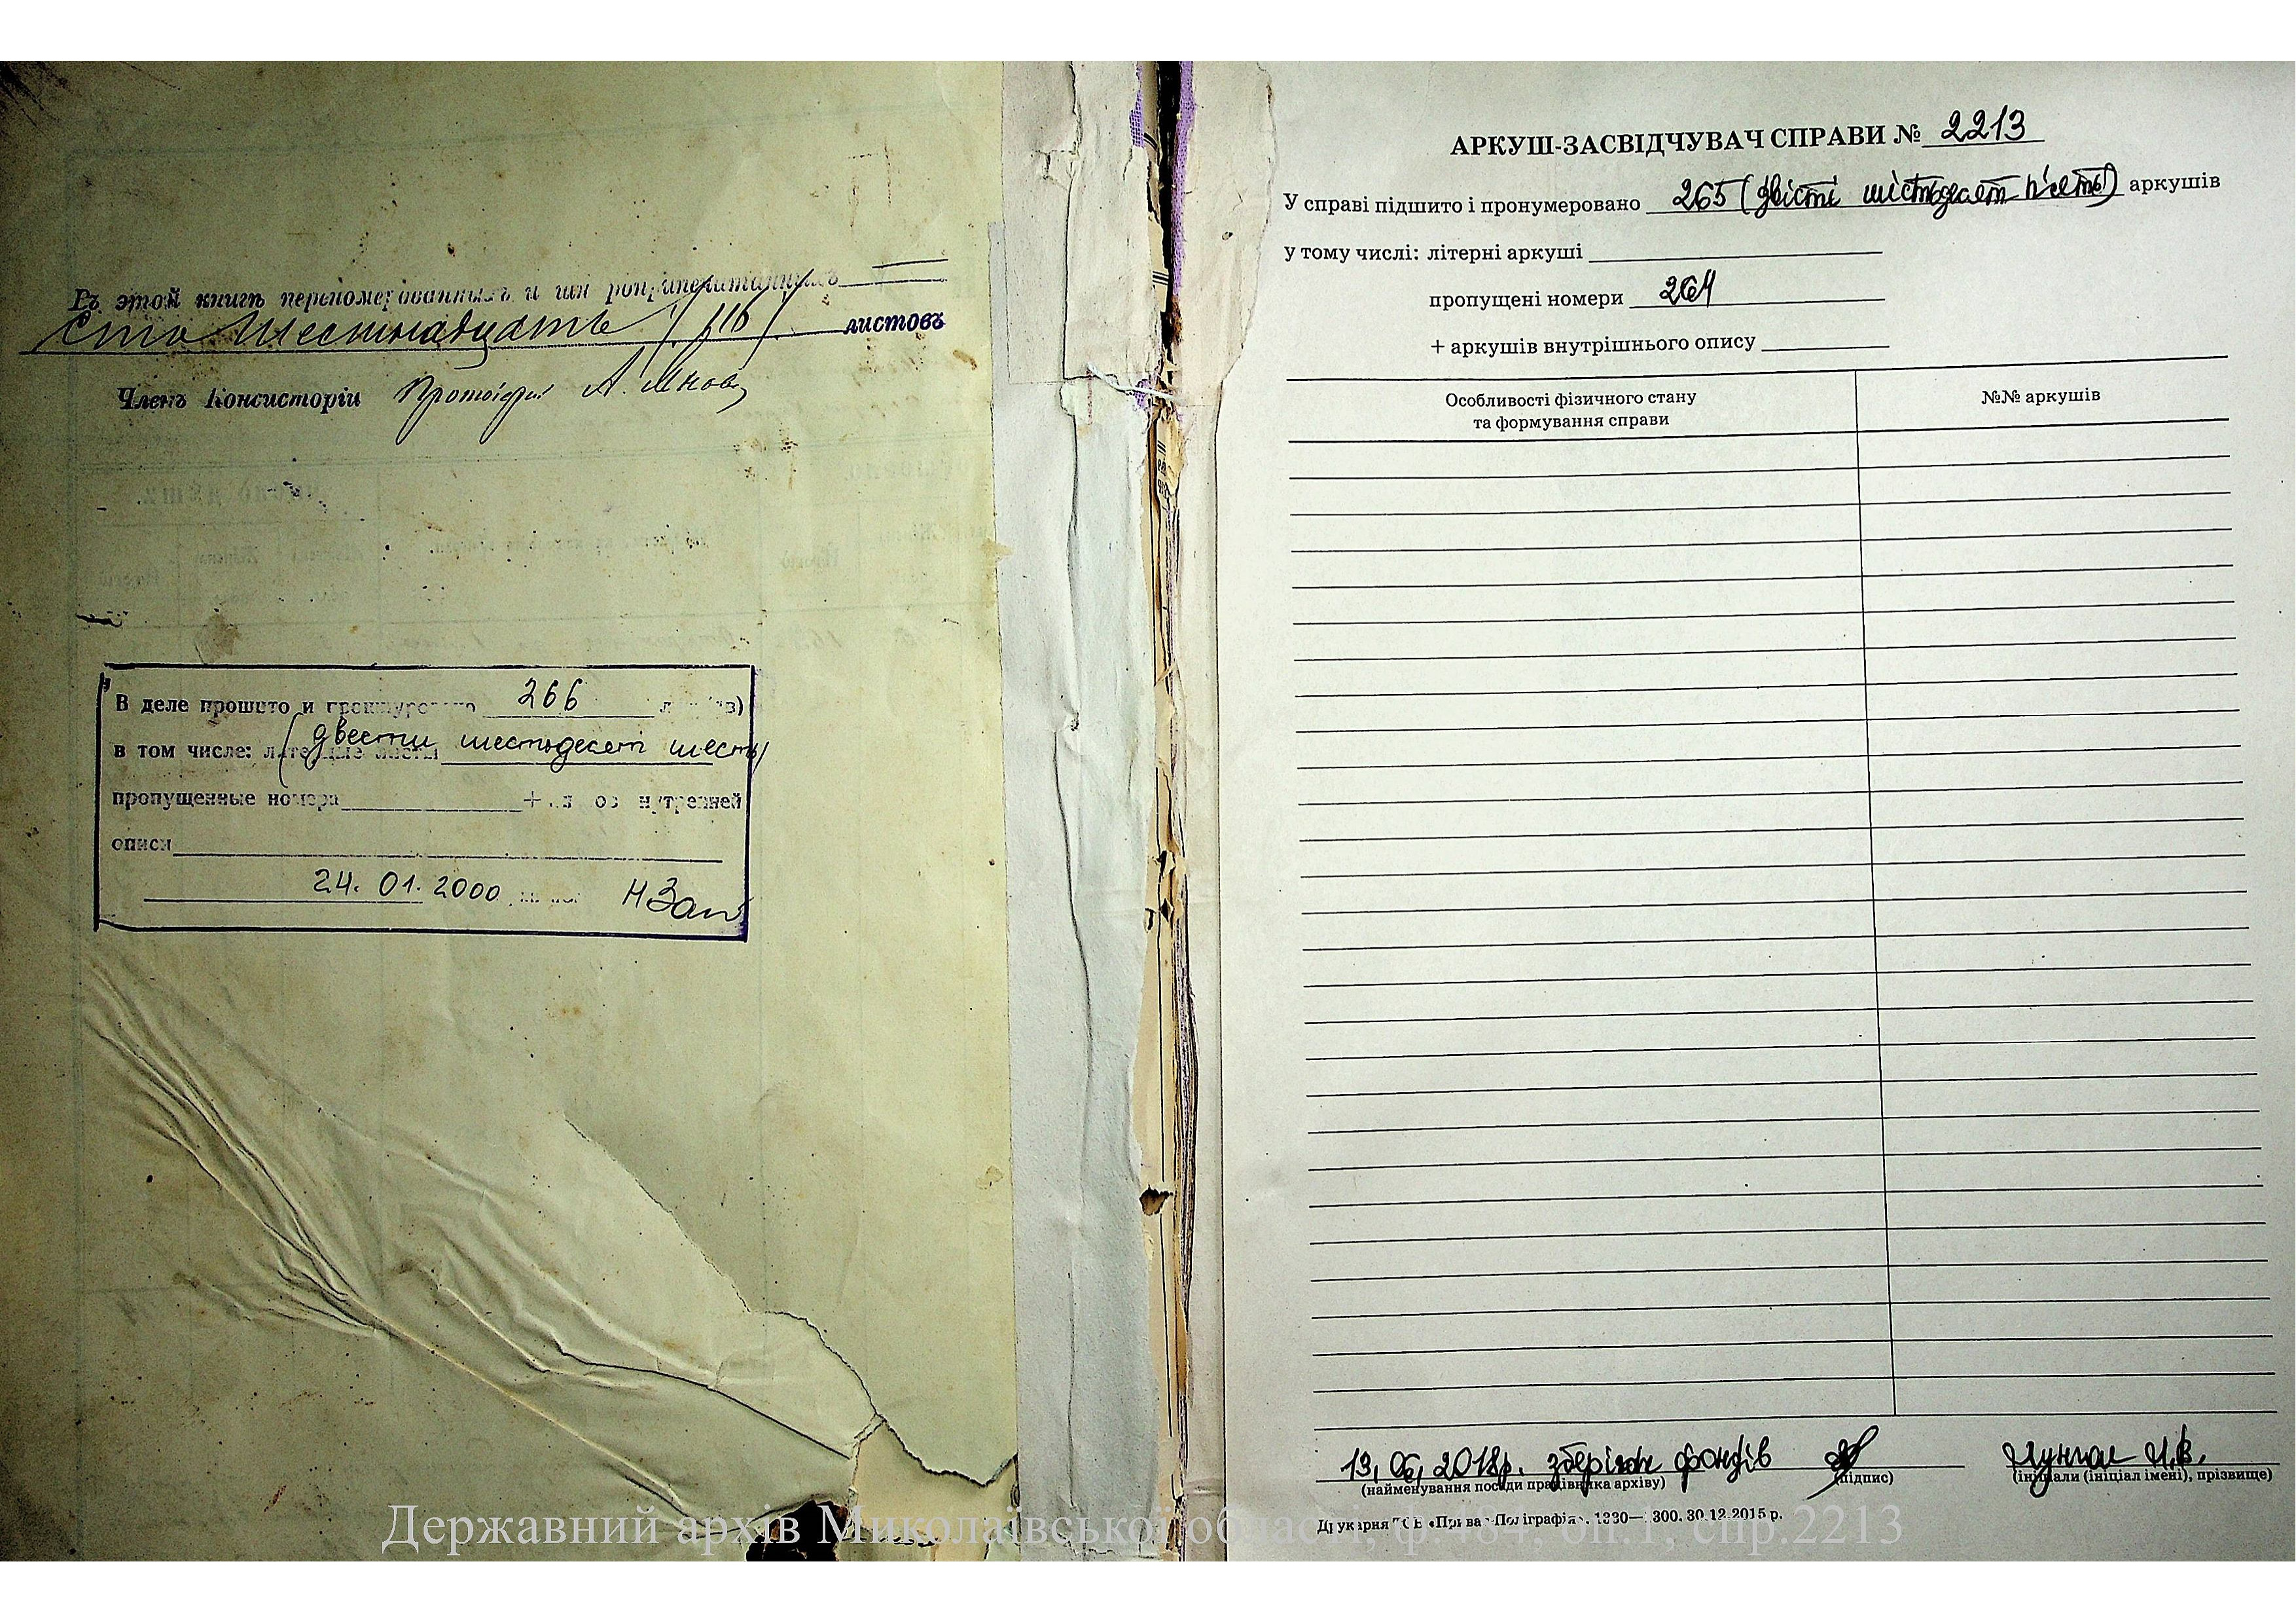 Въ этой книгѣ перенумерованныхъ и
Сто Шестнадцать /116/ листовъ
Членъ Консисторіи Протоіерей А.
В деле прошито и 266
в том числе: (двести шестьдесят шесть)
пропущенные номера +
описи
24. 01. 2000
АРКУШ-ЗАСВІДЧУВАЧ СПРАВИ № 2213
У справі підшито і пронумеровано 265 (двісті шістдесят п'ять) аркушів
у тому числі: літерні аркуші
пропущені номери 264
+ аркушів внутрішнього опису
Особливості фізичного стану
та формування справи
№№ аркушів
13, 06, 2018р. зберігач фондів
(найменування посади працівника архіву)
(підпис)
(ініціали (ініціал імені), прізвище)
Друкарня ТОВ «Прива Поліграфія». 1330—1300. 30.12.2015 р.
Державний архів Миколаївської області, ф. оп.1, спр.2213